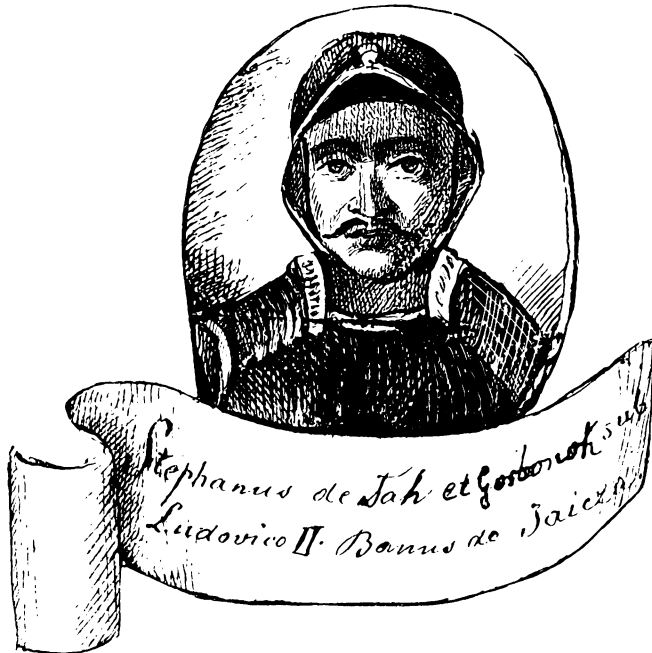 Stephanus de Táh et Gorbonok sub
Ludovico II. Banus de Jaicza